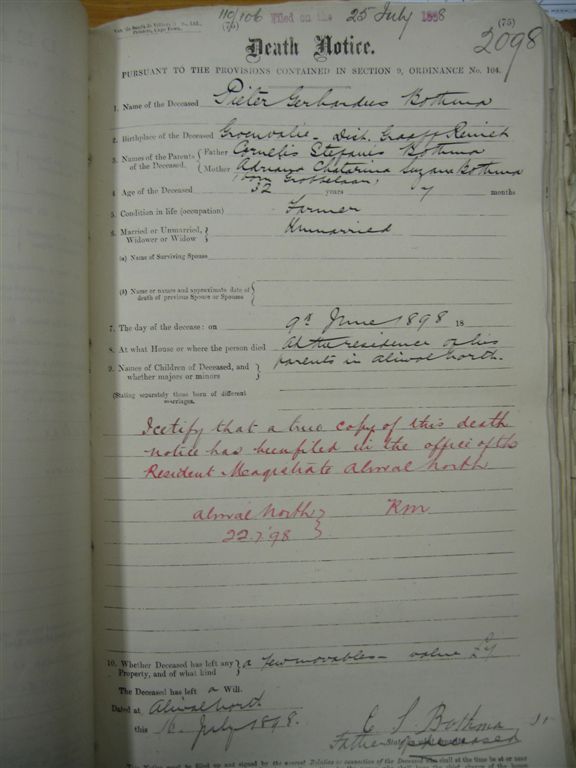 110/106 Filed on the 25 July 1898
(75)
2098
Death Notice.
PURSUANT TO THE PROVISIONS CONTAINED IN SECTION 9, ORDINANCE No. 104.
1. Name of the Deceased Pieter Gerhardus Bothma
2. Birthplace of the Deceased Groenvalie - Dist. Graaff Reinet
3. Names of the Parents of the Deceased. { Father Cornelis Stefanis Bothma
Mother Adriana Chatarina Suzana Bothma
born Grobbelaar
4. Age of the Deceased 32 years 7 months
5. Condition in life (occupation) Farmer
6. Married or Unmarried, Widower or Widow } Unmarried
(a) Name of Surviving Spouse
(b) Name or names and approximate date of death of previous Spouse or Spouses {
7. The day of the decease: on 9th June 1898 18
8. At what House or where the person died At the residence of his
parents in Aliwal North.
9. Names of Children of Deceased, and whether majors or minors }
(Stating separately those born of different marriages.
I cetify that a true copy of this death
notice has been filed in the office of the
Resident Magistrate Aliwal North
Aliwal North } RM
22.7.98
10. Whether Deceased has left any Property, and of what kind } a few movables - value
The Deceased has left a Will.
Dated at Aliwal North
this 16 July 1898.
C S Bothma
Father